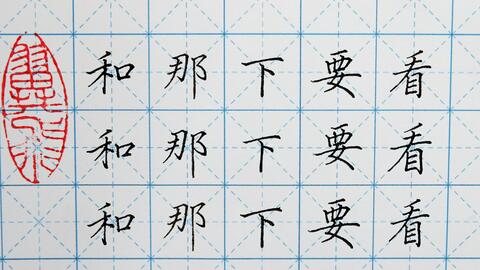 和那下要看
和那下要看
和那下要看